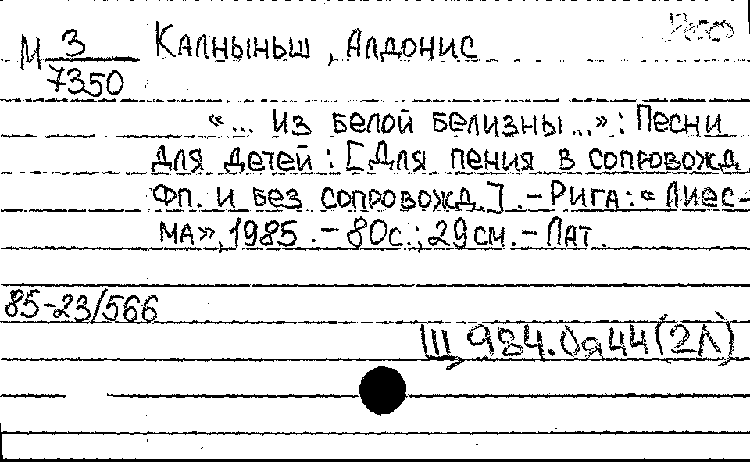 М 3/7350 Калныньш, Алдонис
«... Из белой белизны...»: Песни
для детей: [Для пения в сопровожд.
фп. и без сопровожд.]. – Рига: «Лиес-
ма», 1985. – 80с.; 29см. – Лат.
85-23/566
Щ 984.0я44(2Л)